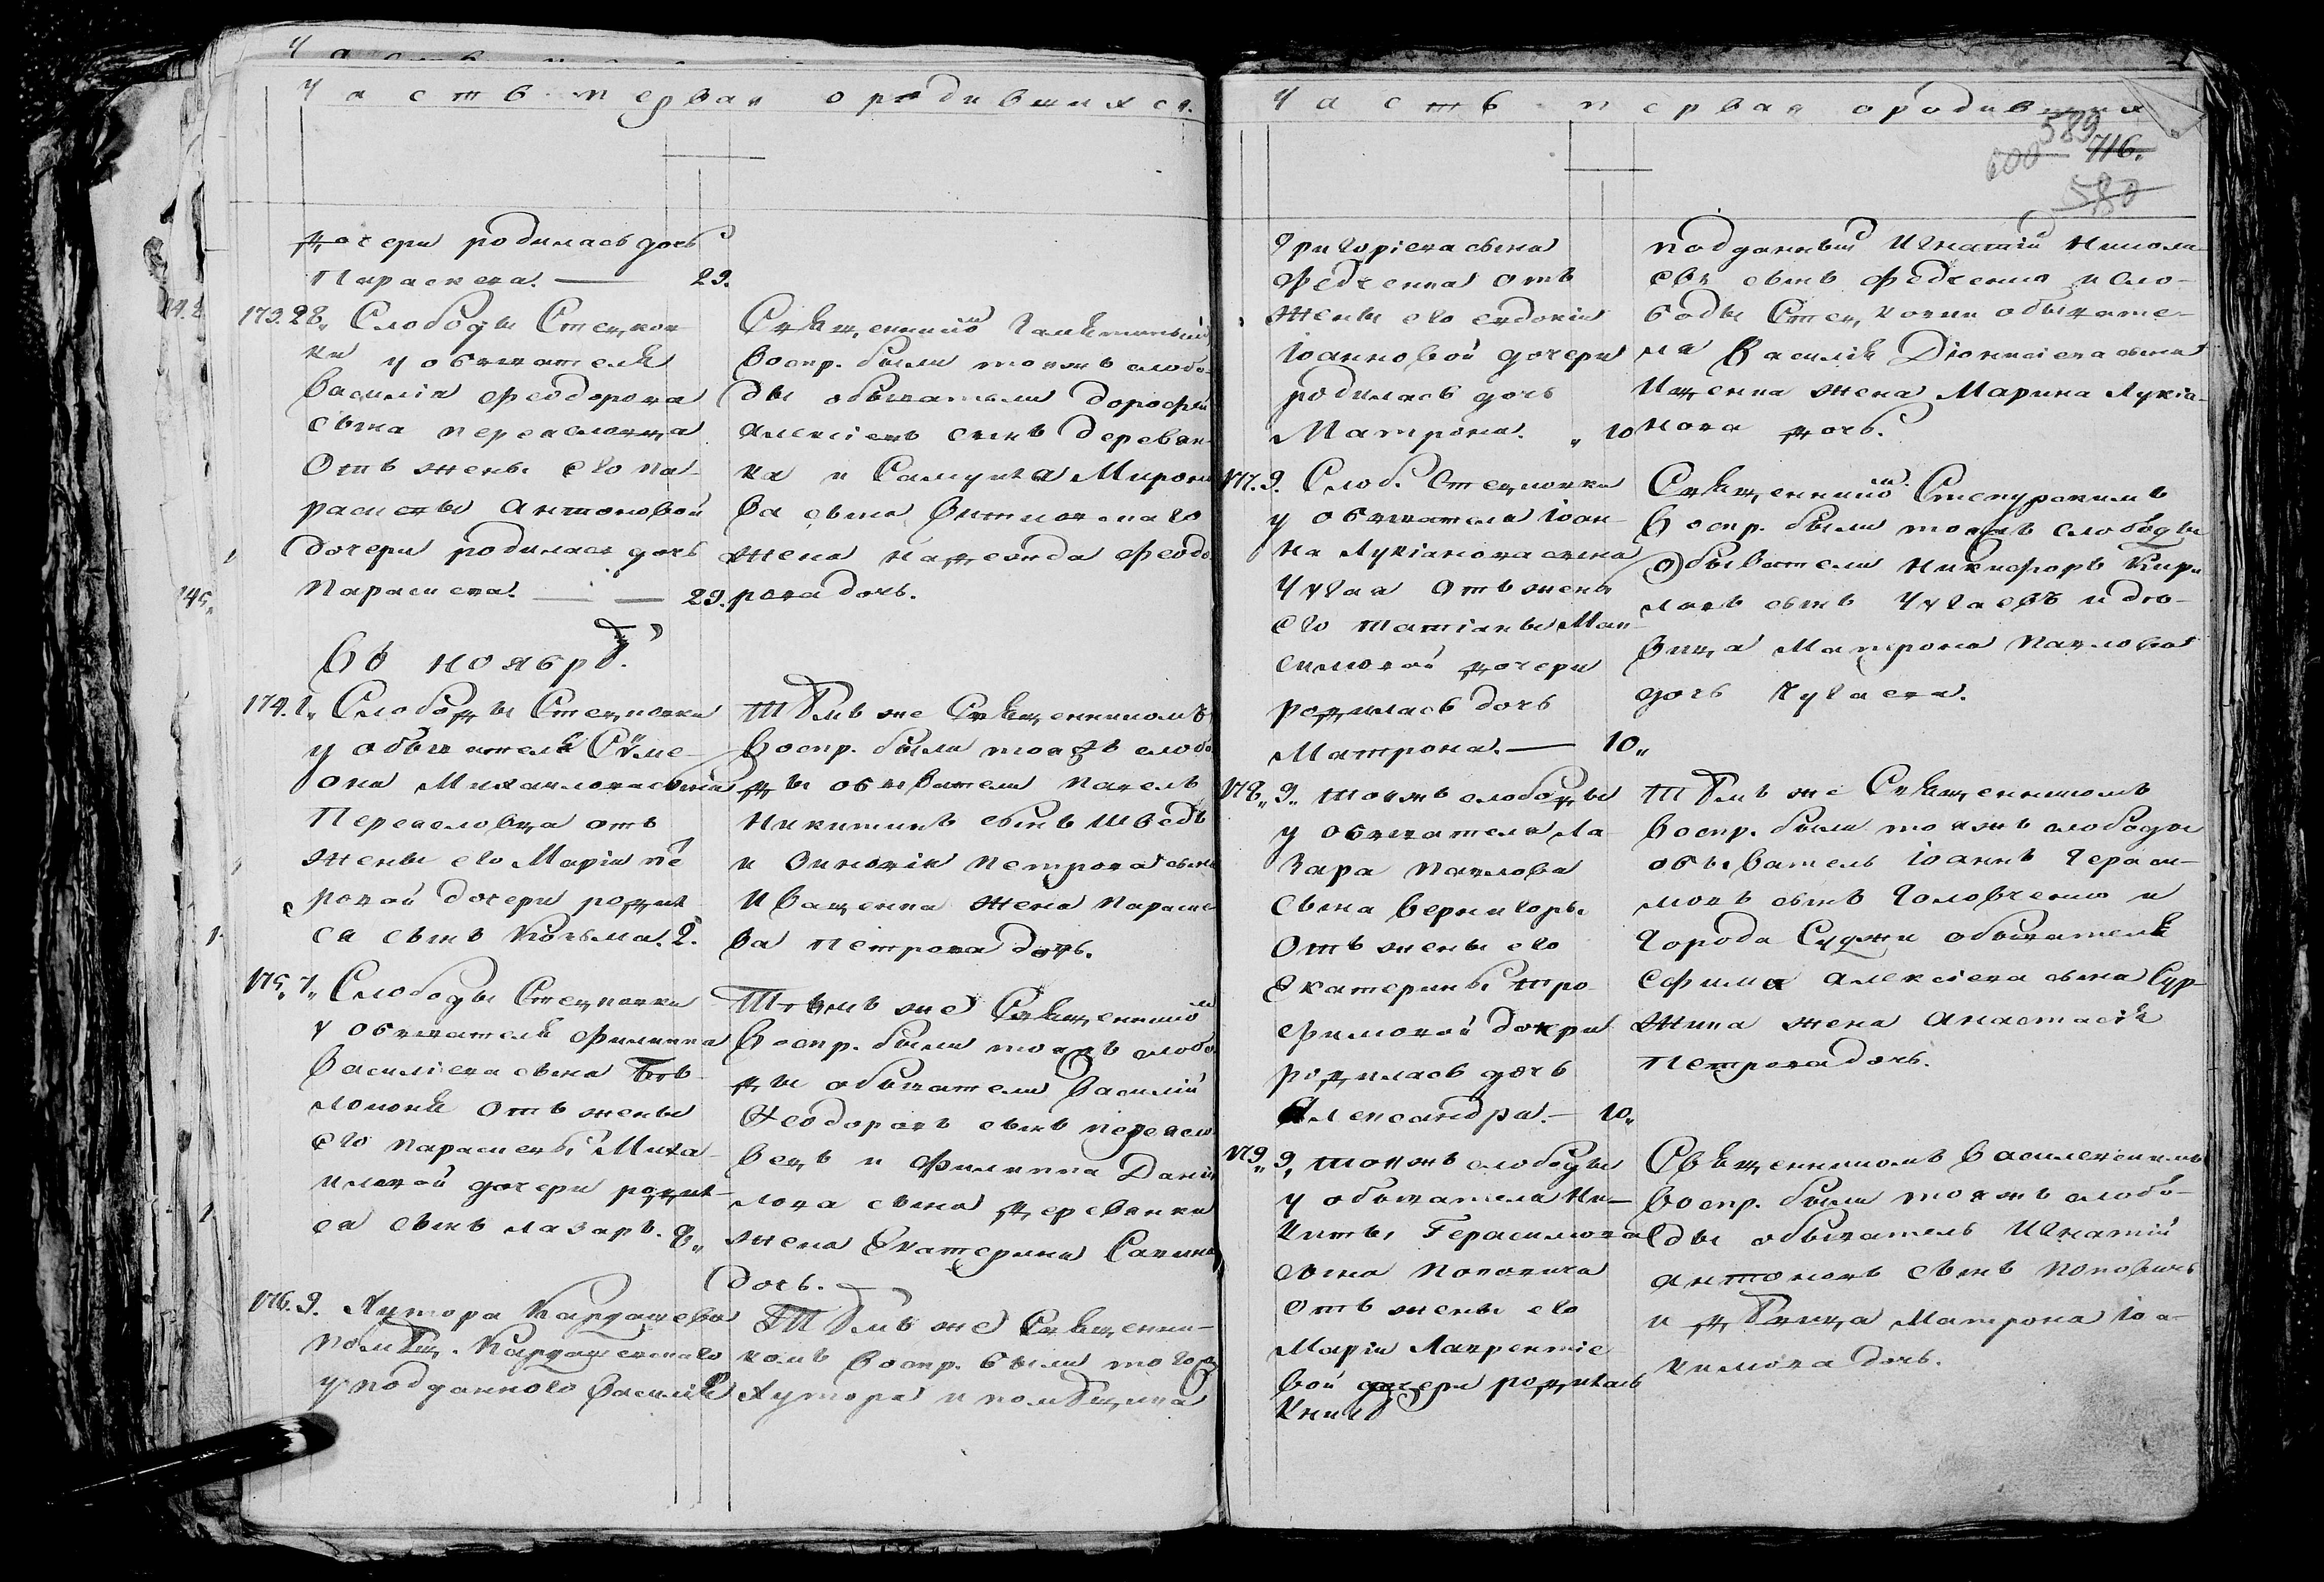 Часть первая о родившихся.
дочери родилась дочь
Параскева. — 29.
173. 28. Слободы Стецков-
ки у обывателя
Василія Феодорова
сына Переяславца
отъ жены его Па-
раскевы Антоновой
дочери родилась дочь
Параскева. — — 29.
Священникомъ
Воспр. были тояжъ слобо-
ды обыватели Дорофей
Алексіевъ сынъ Деревян-
ка и Самуила Мироно
ва сына
жена Надежда Феодо
рова дочь.
Въ ноябрѣ.
174. 1. Слободы Стецковки
у обывателя Сѵме-
она Михаилова сына
Переяславца отъ
жены его Маріи Пе
ровой дочери родил
ся сынъ Козьма. 2.
Тѣмъ же Священникомъ
Воспр. были тояжъ слобо
ды обыватели Павелъ
Никитинъ сынъ Шведъ
и Зиновія Петрова сына
Иващенка жена Параске
ва Петрова дочь.
175. 7. Слободы Стецковки
у обывателя Филиппа
Василіева сына Бѣ-
локоня отъ жены
его Параскевы Миха-
иловой дочери родил-
ся сынъ Лазарь. 8.
Тѣмъ же Священникомъ
Воспр. были тояжъ слобо
ды обыватели Василій
Феодоровъ сынъ Переясла
вецъ и Филиппа Дани
лова сына Деревянки
жена Екатерина Саввина
дочь. —
176. 9. Хутора Кардашева
помѣщ. Кардашевскаго
у подданнаго Василія
Тѣмъ же Священни-
комъ Воспр. были того жъ
Хутора и помѣщика
Часть первая о родившихся
589
600 716.
580
Григоріева сына
Федченка отъ
жены его Евдокіи
Іоанновой дочери
родилась дочь
Матрона. „ 10
подданный Игнатій Никола
евъ сынъ Федченко и Сло-
боды Стецковки обывате-
ля Василія Діонисіева сына
Ищенка жена Марина Лукія-
нова дочь.
177. 9. Слоб. Стецковки
у обывателя Іоан-
на Лукіанова сына
Чугая отъ жены
его Татіаны Мак
симовой дочери
родилась дочь
Матрона. — 10„
Священникомъ
Воспр. были тояжъ Слободы
Обыватели Никифоръ Кири
ловъ сынъ Чугаевъ и дѣ-
вица Матрона Павлова
дочь Чугаева.
178„ 9„ Тояжъ слободы
у обывателя Ла-
заря Павлова
сына Вернигоры
Отъ жены его
Екатерины Тро-
фимовой дочери
родилась дочь
Александра. — 10„
Тѣмъ же Священникомъ
Воспр. были тояжъ слободы
обыватель Іоаннъ Гераси-
мовъ сынъ Головченко и
города Суджи обывателя
Ефима Алексіева сына Сур-
жина жена Анастасія
Петрова дочь.
179„ 9„ Тояжъ слободы
у обывателя Ни-
киты Герасимова
сына Поповича
отъ жены его
Маріи Лаврентіе
вой дочери родилась
Священникомъ Василевскимъ
Воспр. были тояжъ слобо-
ды обыватель Игнатій
Антоновъ сынъ Поповичь
и дѣвица Матрона Іоа-
кимова дочь.